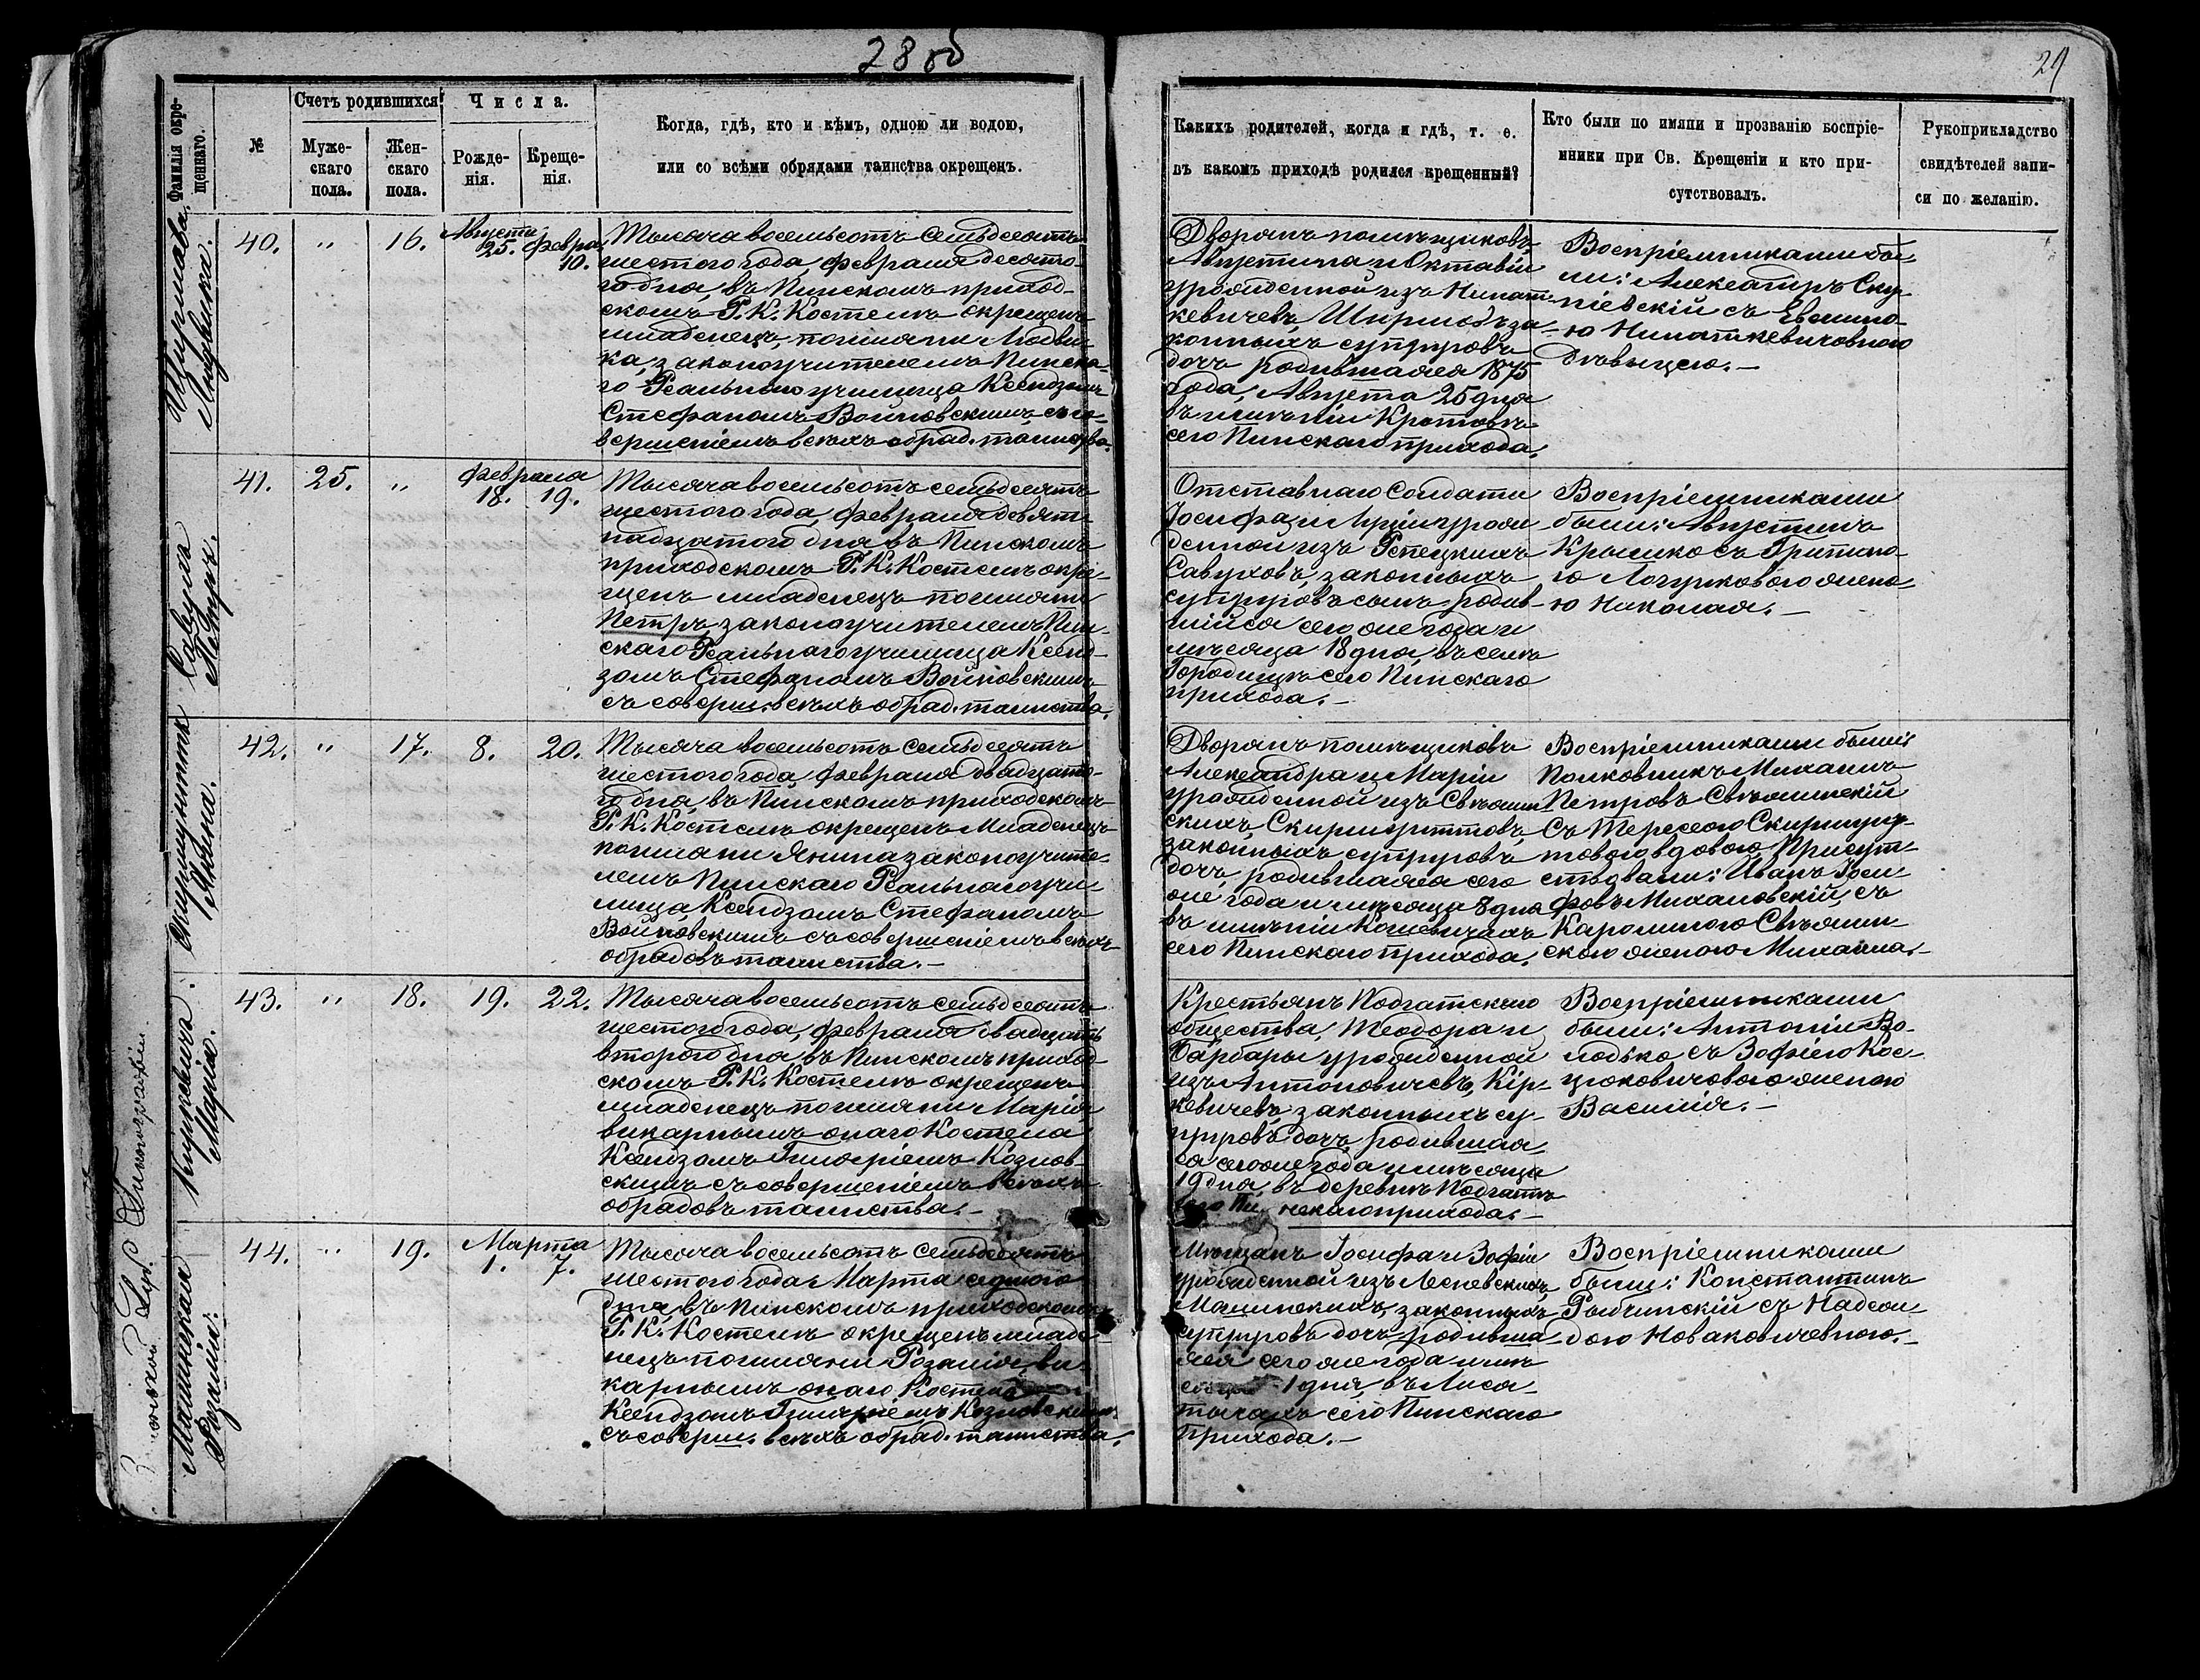 28 об
29
Фамилія окре-
щеннаго.
№
Счетъ родившихся
Муже-
скаго
пола.
Жен-
скаго
пола.
Числа.
Рожде-
нія.
Креще-
нія.
Когда, гдѣ, кто и кѣмъ, одною ли водою,
или со всѣми обрядами таинства окрещенъ.
Каких​ъ родителей, когда и гдѣ, т. е.
въ какомъ приходѣ родился крещенный?
Кто были по имяни и прозванію воспріе-
мники при Св. Крещеніи и кто при-
сутствовалъ.
Рукоприкладство
свидѣтелей запи-
си по желанію.
Ширмава.
Людвика.
40.
"
16.
Августа
25.
Февра.
10.
Тысяча восемьсотъ семьдесятъ
шестого года, Февраля десято-
го дня, въ Пинскомъ приход-
скомъ Р. К. Костелѣ окрещенъ
младенецъ, по имяни Людви-
ка, законоучителемъ Пинска-
го Реальнаго училища Ксендзомъ
Стефаномъ Войновскимъ, съ со-
вершеніемъ всѣхъ обряд. таинства.
Дворянъ помѣщиковъ
Августина и Октавіи
урожденной изъ
кевичевъ, Ширмовъ за-
конныхъ супруговъ
дочь, родившаяся 1875
года, Августа 25 дня
въ имѣніи Кротовѣ
сего Пинскаго прихода.
Воспріемниками бы-
ли: Александръ Ску-
піевскій съ
ю
Дѣвицею.-
Савуха
Петръ.
41.
25.
"
Февраля
18.
19.
Тысяча восемьсотъ семьдесятъ
шестого года, Февраля девят-
надцатого дня, въ Пинскомъ
приходскомъ Р. К. Костелѣ окре-
щенъ младенецъ по имяни
Петръ, законоучителемъ Пин-
скаго Реальнаго училища Ксенд-
зомъ Стефаномъ Войновскимъ
съ соверш. всѣхъ обряд. таинства.
Отставнаго Солдата
Іосифа и урож-
денной изъ Репецкихъ
Савуховъ, законныхъ
супруговъ сынъ, родив-
шійся сего же года и
мѣсяца 18 дня, въ селѣ
Городищѣ сего Пинскаго
прихода.-
Воспріемниками
были: Августинъ
Крышко съ
го жено-
ю Николая.-
Скирмунттъ
Янина.
42.
"
17.
8.
20.
Тысяча восемьсотъ семьдесятъ
шестого года, Февраля двадцато-
го дня, въ Пинскомъ приходскомъ
Р. К. Костелѣ окрещенъ младенецъ
по имяни Янина законоучите-
лемъ Пинскаго Реальнаго учи-
лища Ксендзомъ Стефаномъ
Войновскимъ съ совершеніемъ всѣхъ
обрядовъ таинства.-
Дворянъ помѣщиковъ
Александра и Маріи
урожденной изъ Свѣжин-
скихъ, Скирмунттовъ,
законныхъ супруговъ
дочь, родившаяся сего
же года и мѣсяца 8 дня
въ имѣніи
сего Пинскаго прихода.
Воспріемниками были:
Полковникъ Михаилъ
Петровъ Свѣжинскій
съ Тересою Скирмунт-
товою вдовою. Присут-
ствовали: Иванъ Іоси-
фовъ Михаловскій, съ
Каролиною Свѣжин-
скою женою Михаила.-
Киркевичъ.
Марія.
43.
"
18.
19.
22.
Тысяча восемьсотъ семьдесятъ
шестого года, Февраля двадцать
второго дня, въ Пинскомъ приход-
скомъ Р. К. Костелѣ окрещенъ
младенецъ по имяни Марія
викарнымъ онаго Костела
Ксендзомъ Козлов-
скимъ съ совершеніемъ всѣхъ
обрядовъ таинства.-
Крестьянъ Подгатскаго
общества, Теодора и
Барбары урожденной
изъ Антоновичевъ, Кір-
кевичевъ, законныхъ су-
пруговъ дочь, родившая-
ся сего же года и мѣсяца
19 дня, въ деревнѣ Подгатѣ
сего Пинскаго прихода.-
Воспріемниками
были: Антоній Во-
лодько съ Зофіею Кос-
цюковичовою женою
Василія.-
Малинская
Розалія.
44.
"
19.
Марта
1.
7.
Тысяча восемьсотъ семьдесятъ
шестого года Марта седмого
дня, въ Пинскомъ приходскомъ
Р. К. Костелѣ окрещенъ младе-
нецъ по имяни Розалія, ви-
карнымъ онаго Костела
Ксендзомъ Козловскимъ
съ соверш. всѣхъ обряд. таинства.
Мѣщанъ Іосифа и Зофіи
урожденной изъ Лесневскихъ,
Малинскихъ, законныхъ
супруговъ дочь родивша-
яся сего же года и мѣ-
сяца 1 дня, въ Лиса-
тычахъ сего Пинскаго
прихода.-
Воспріемниками
были: Константинъ
Рыбчинскій съ
дою Новаковичевною.-